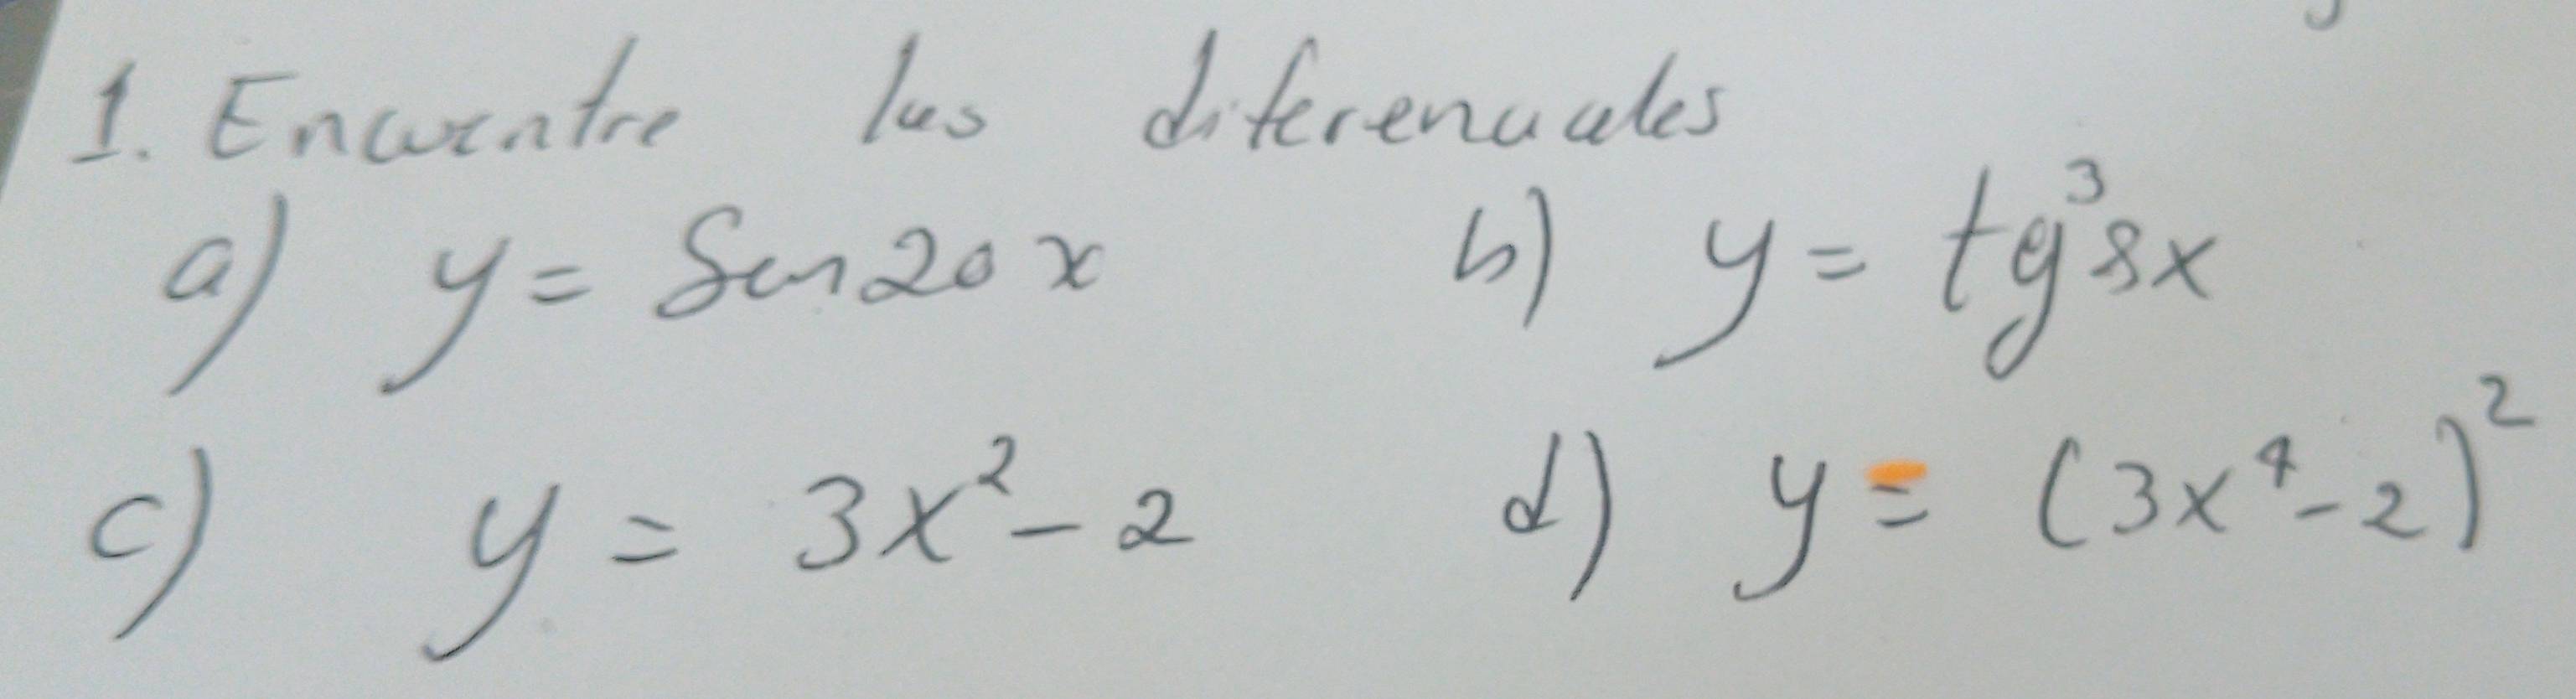 1. Encuentre las diferenciales
a) y = Sen 20 x b) y = tg³8x
c) y = 3x² - 2 d) y = (3x⁴ - 2)²